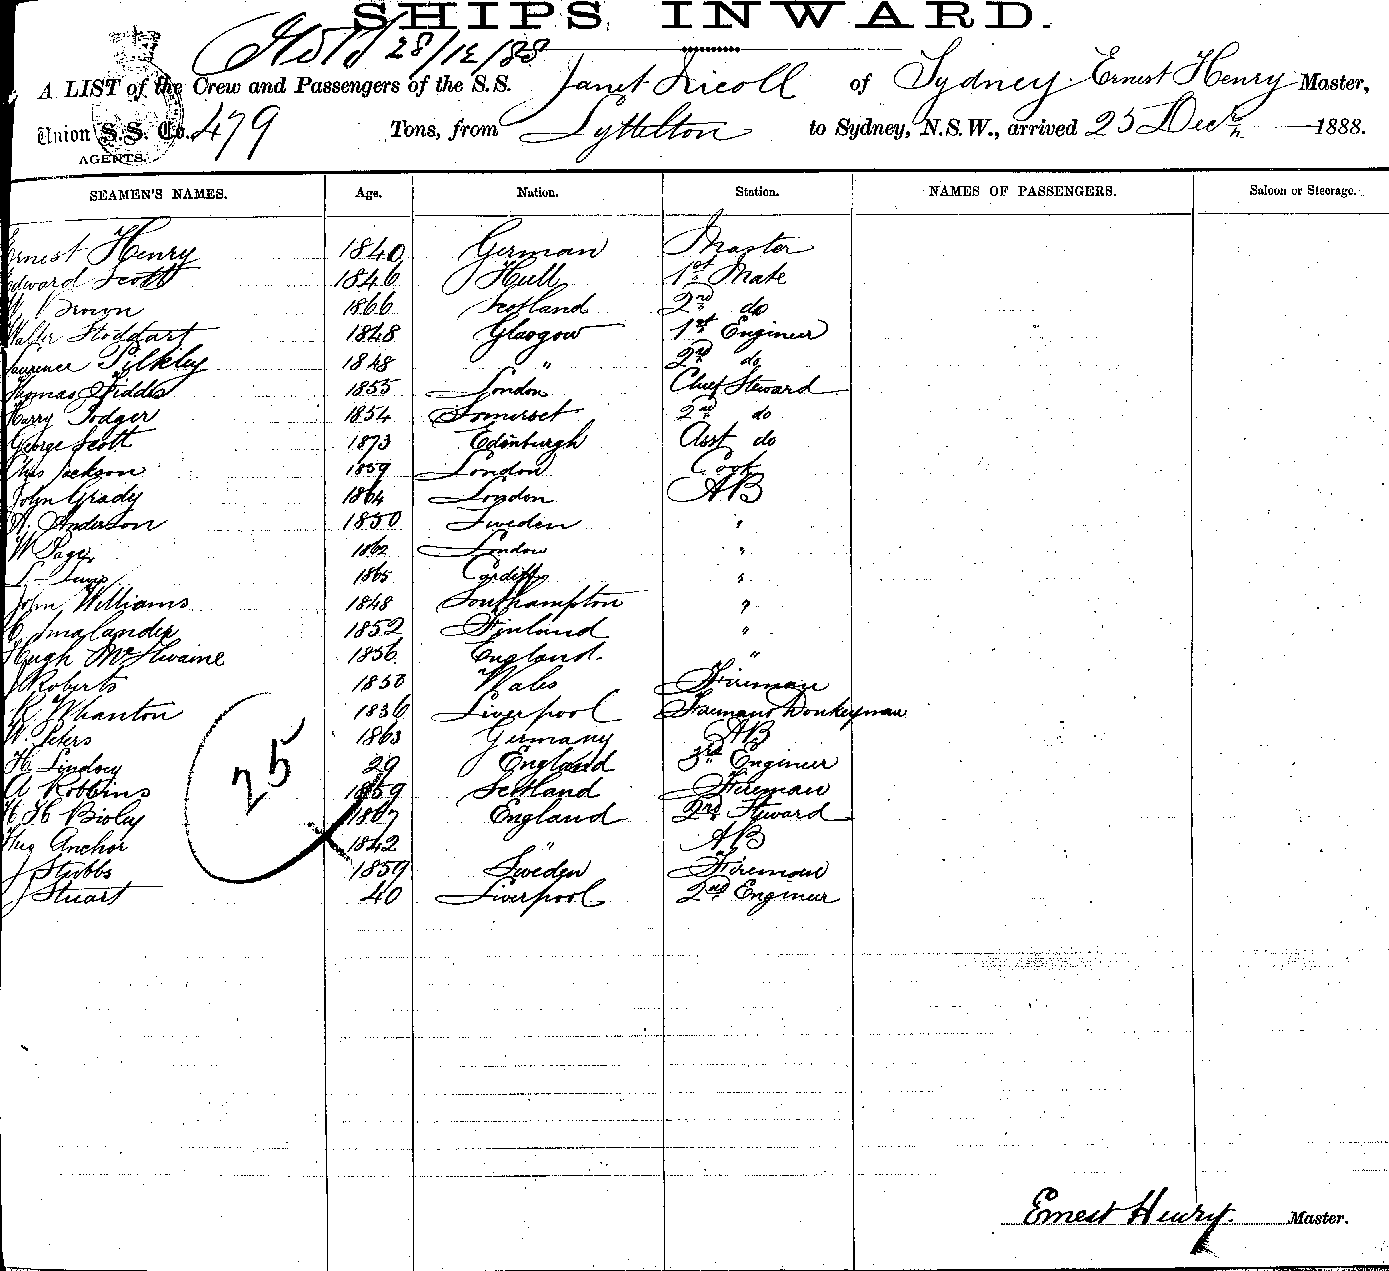 SHIPS INWARD.
28/12/88
A LIST of the Crew and Passengers of the S.S. Janet Nicoll of Sydney Ernest Henry Master,
Union S.S. Co. 479 Tons, from Lyttelton to Sydney, N.S.W., arrived 25 Decr 1888.
AGENTS.
SEAMEN'S NAMES. Age. Nation. Station. NAMES OF PASSENGERS. Saloon or Steerage.
Ernest Henry 1840 German Master
Edward Scott 1846 Hull 1st Mate
W Brown 1866 Scotland 2nd do
Walter Stoddart 1848 Glasgow 1st Engineer
Laurence Pilkley 1848 " 2nd do
Thomas Fiddes 1855 London Chief Steward
Harry Todger 1854 Somerset 2nd do
George Scott 1873 Edinburgh Asst do
Chas Jackson 1859 London Cook
John Grady 1864 London AB
A. Anderson 1850 Sweden "
W Page 1862 London "
1865 Cardiff "
John Williams 1848 Southampton "
Smalander 1852 Finland "
Hugh McIlwaine 1856 England. "
J Roberts 1850 Wales Fireman
R Whanton 1836 Liverpool Donkeyman
W. Peters 1863 Germany AB
H. Lindsey 29 England 3rd Engineer
A Robbins 1859 Scotland Fireman
H H 1867 England 2nd Steward
Anchor 1842 " AB
J Stubbs 1859 Sweden Fireman
J Stuart 40 Liverpool 2nd Engineer
25
Ernest Henry. Master.